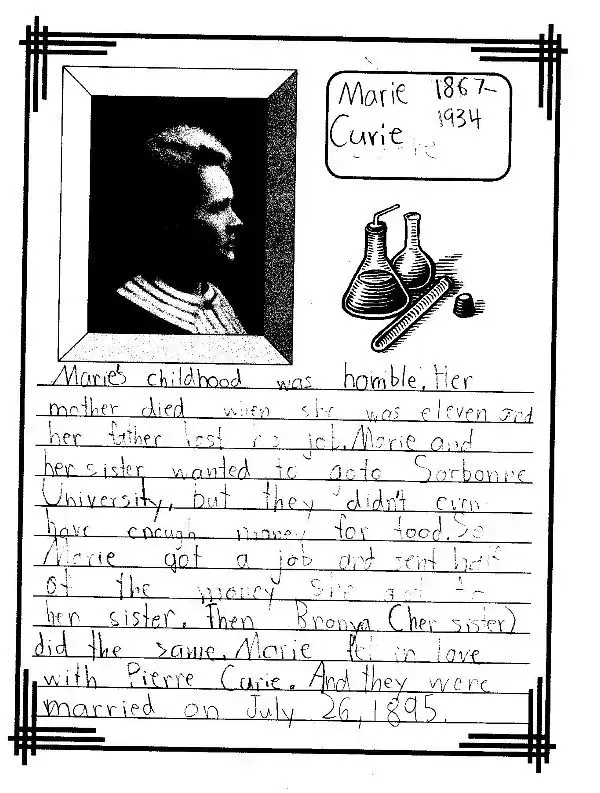 Marie 1867-
Curie 1934
Marie's childhood was homble. Her
mother died when she was eleven and
her father lost his job. Marie and
her sister wanted to goto Sorbonne
University, but they didn't even
have enough money for food. So
Marie got a job and sent half
of the money she got to
her sister. Then Bronya (her sister)
did the same. Marie fel in love
with Pierre Curie. And they were
married on July 26, 1895.